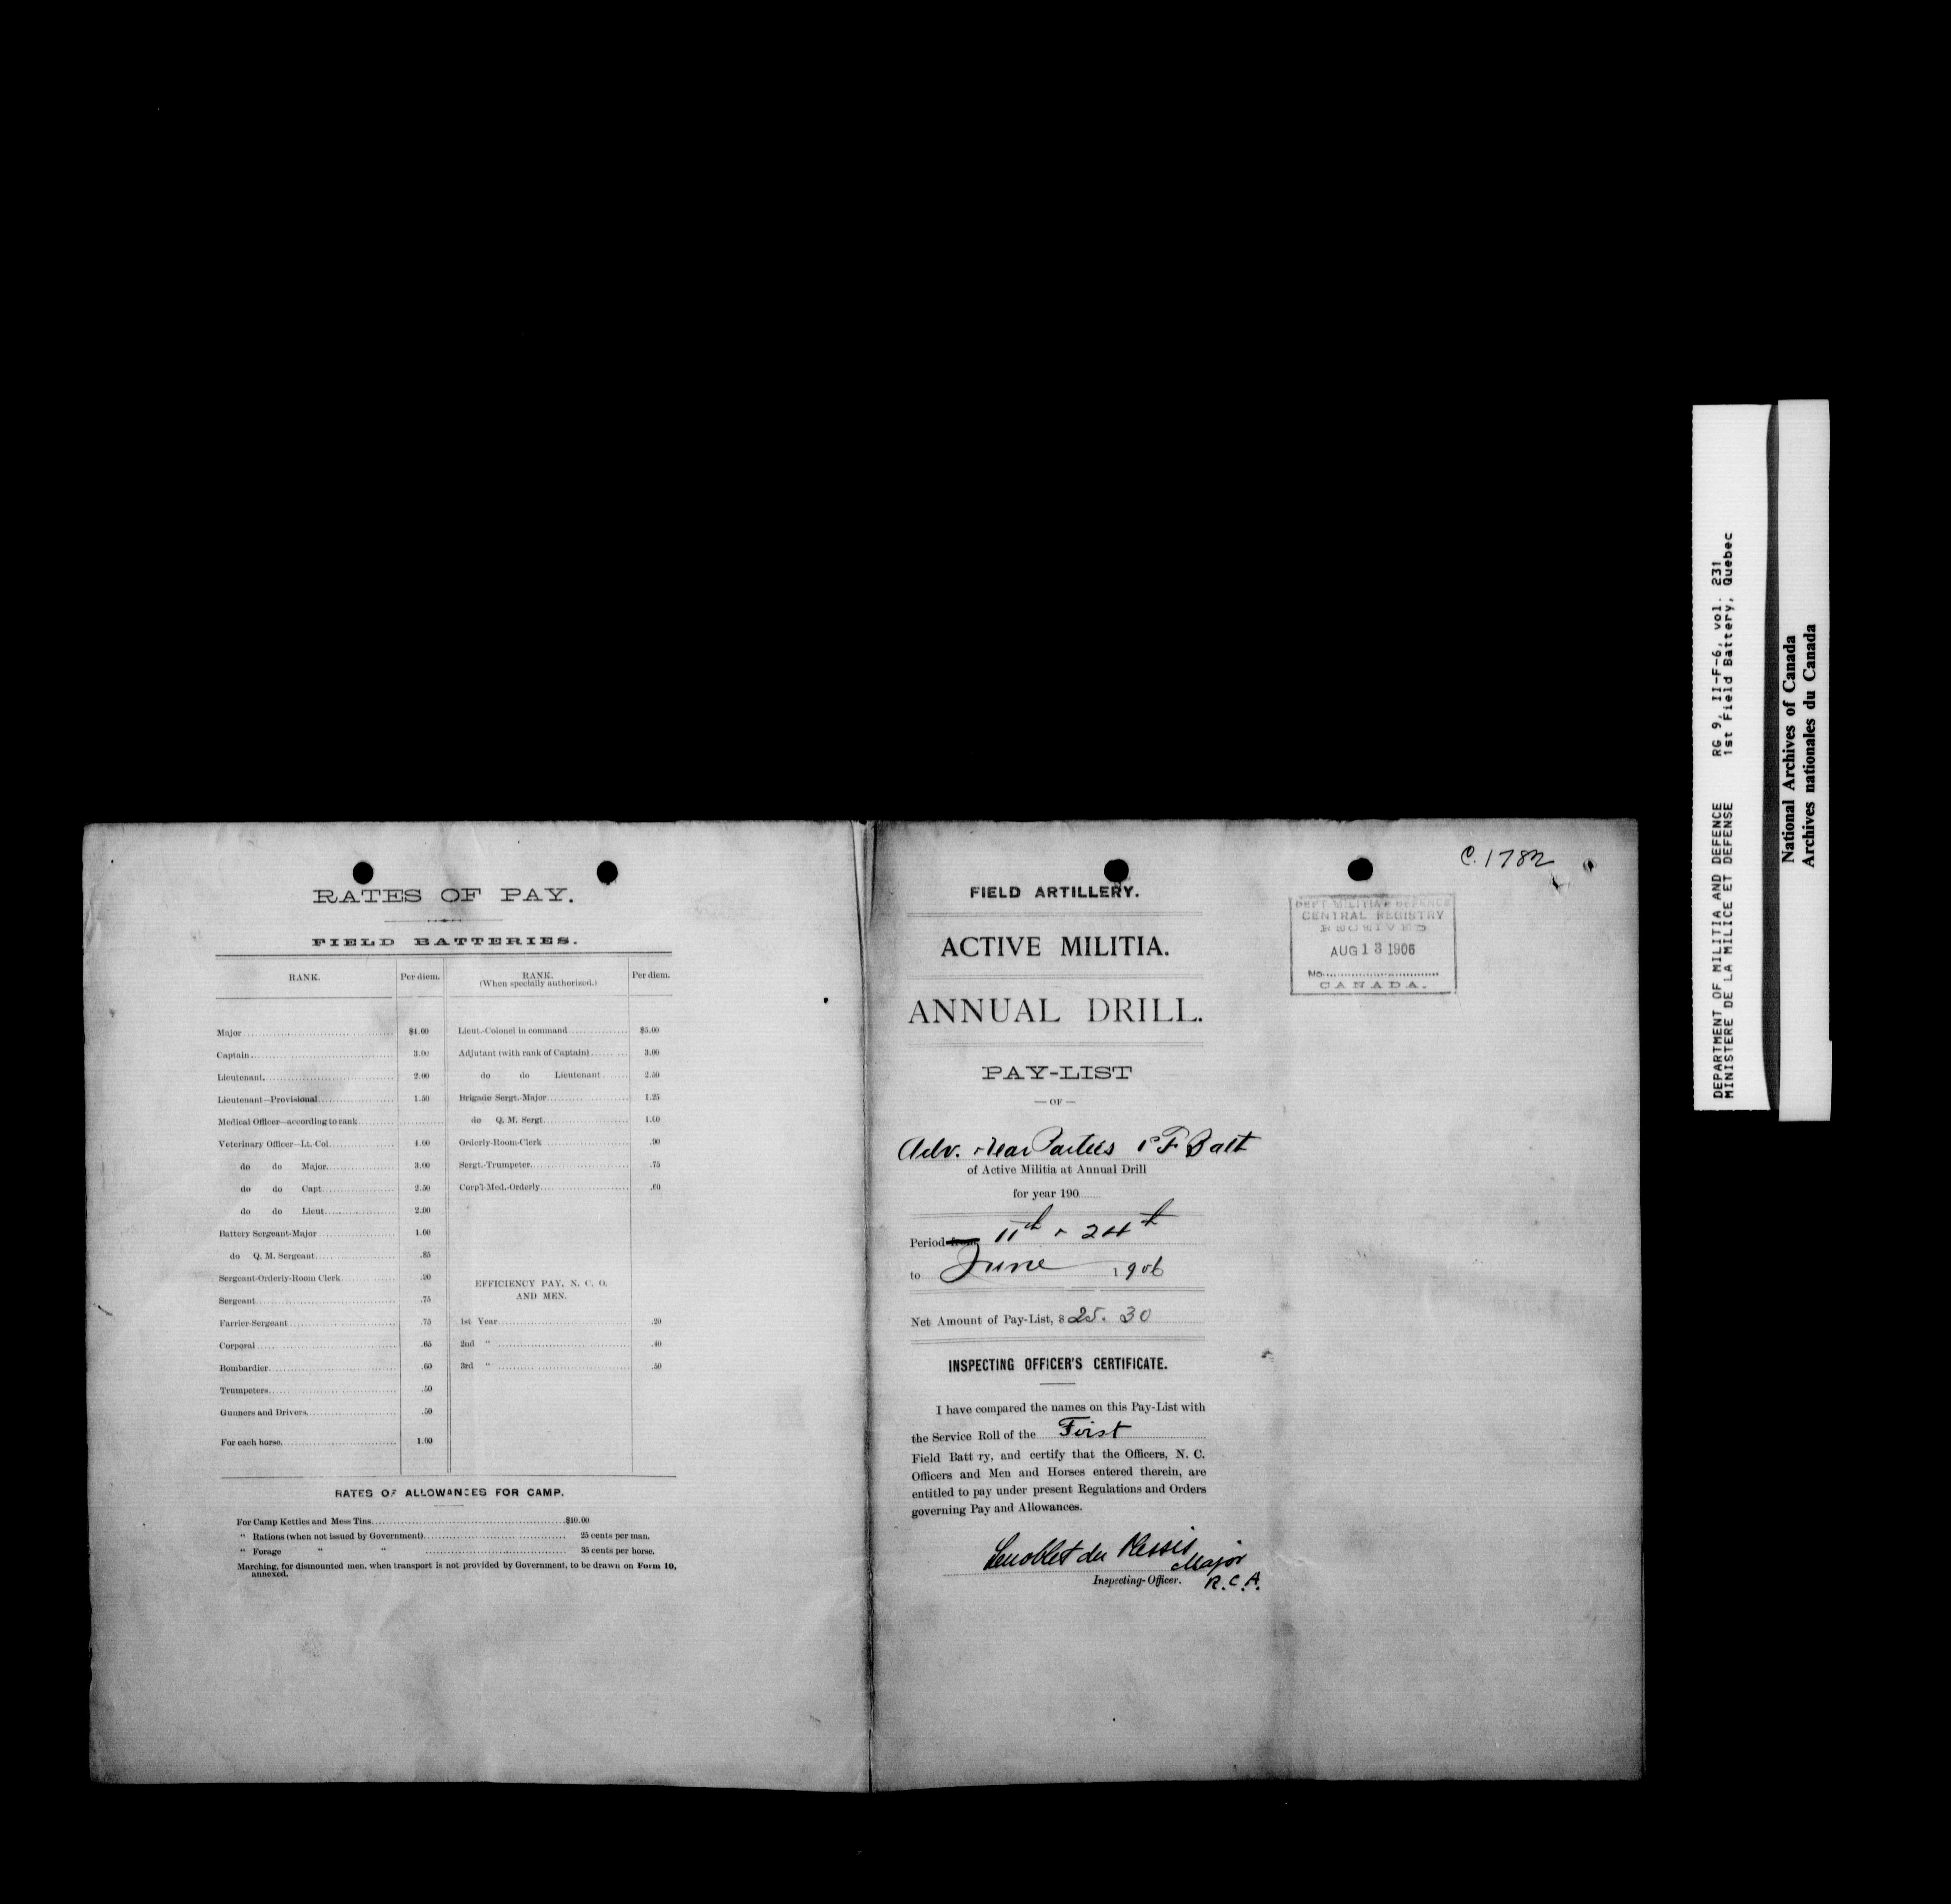 RATES OF PAY.
FIELD BATTERIES.
RANK. Per diem. RANK. (When specially authorized.) Per diem.
Major $4.00 Lieut.-Colonel in command $5.00
Captain 3.00 Adjutant (with rank of Captain) 3.00
Lieutenant 2.00 do do Lieutenant 2.50
Lieutenant—Provisional 1.50 Brigade Sergt.-Major 1.25
Medical Officer—according to rank do Q. M. Sergt. 1.00
Veterinary Officer—Lt. Col. 4.00 Orderly-Room-Clerk .90
do do Major 3.00 Sergt.-Trumpeter .75
do do Capt. 2.50 Corp'l-Med.-Orderly .60
do do Lieut. 2.00
Battery Sergeant-Major 1.00
do Q. M. Sergeant .85
Sergeant-Orderly-Room Clerk .90
EFFICIENCY PAY, N. C. O.
AND MEN.
Sergeant .75
Farrier-Sergeant .75 1st Year .20
Corporal .65 2nd " .40
Bombardier .60 3rd " .50
Trumpeters .50
Gunners and Drivers .50
For each horse 1.00
RATES OF ALLOWANCES FOR CAMP.
For Camp Kettles and Mess Tins $10.00
" Rations (when not issued by Government) 25 cents per man.
" Forage " " 35 cents per horse.
Marching, for dismounted men, when transport is not provided by Government, to be drawn on Form 10,
annexed.
C. 1782
FIELD ARTILLERY.
ACTIVE MILITIA.
ANNUAL DRILL.
PAY-LIST
— OF —
Adv. & Rear Parties 1st F Batt
of Active Militia at Annual Drill
for year 190
Period from 11th & 24th
to June 1906
Net Amount of Pay-List, $25.30
INSPECTING OFFICER'S CERTIFICATE.
I have compared the names on this Pay-List with
the Service Roll of the First
Field Batt ry, and certify that the Officers, N. C.
Officers and Men and Horses entered therein, are
entitled to pay under present Regulations and Orders
governing Pay and Allowances.
Lenoblet du Plessis
Major
Inspecting-Officer. R.C.A.
DEPT MILITIA & DEFENCE
CENTRAL REGISTRY
RECEIVED
AUG 13 1906
No.
CANADA.
DEPARTMENT OF MILITIA AND DEFENCE RG 9, II-F-6, vol. 231
MINISTERE DE LA MILICE ET DEFENSE 1st Field Battery, Quebec
National Archives of Canada
Archives nationales du Canada